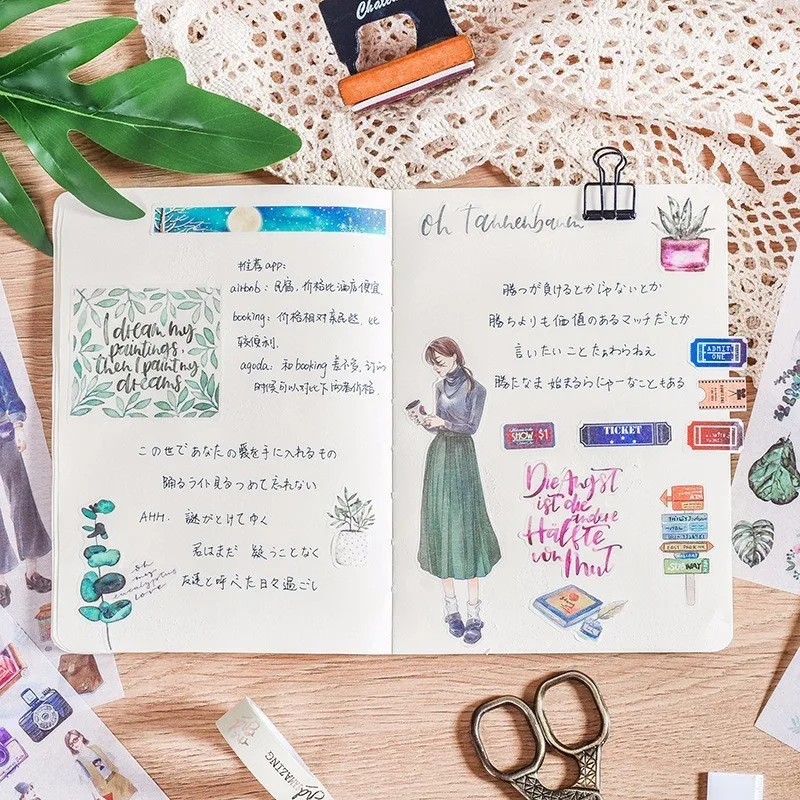 Chalet
推荐app:
airbnb: 民宿, 价格比酒店便宜.
booking: 价格相对亲民些, 比
较便利.
agoda: 和booking差不多, 订的
时候可以对比下两者价格.
I dream my
paintings,
then I paint my
dreams
この世であなたの愛を手に入れるもの
踊るライト見るつめて忘れない
AHH. 謎がとけてゆく
君はまだ 疑うことなく
友達と呼べた日々過ごし
oh
my
eucalyptus
love
oh tannenbaum
勝つが負けるとかじゃないとか
勝ちよりも価値のあるマッチだとか
言いたいことたぁわらねぇ
勝たなま 始まるらにゃーなこともある
ADMIT
ONE
SHOW $1
TICKET
Die Angst
ist die
andere
Hälfte
von Mut
SUBWAY
AMAZING